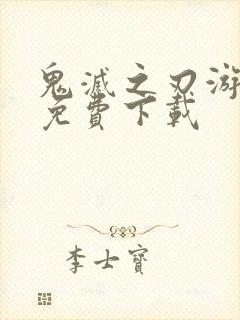 鬼滅之刃游
免費下載
李士寶